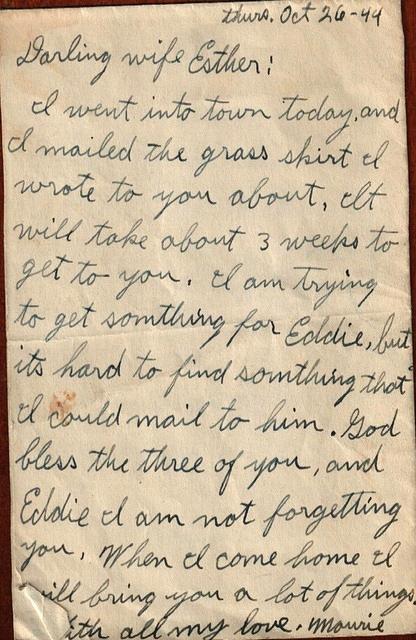 thurs. Oct 26-44
Darling wife Esther:
I went into town today, and
I mailed the grass skirt I
wrote to you about, It
will take about 3 weeks to
get to you. I am trying
to get somthing for Eddie, but
its hard to find somthing that
I could mail to him. God
bless the three of you, and
Eddie I am not forgetting
you, When I come home I
will bring you a lot of things
ith all my love. Mourie